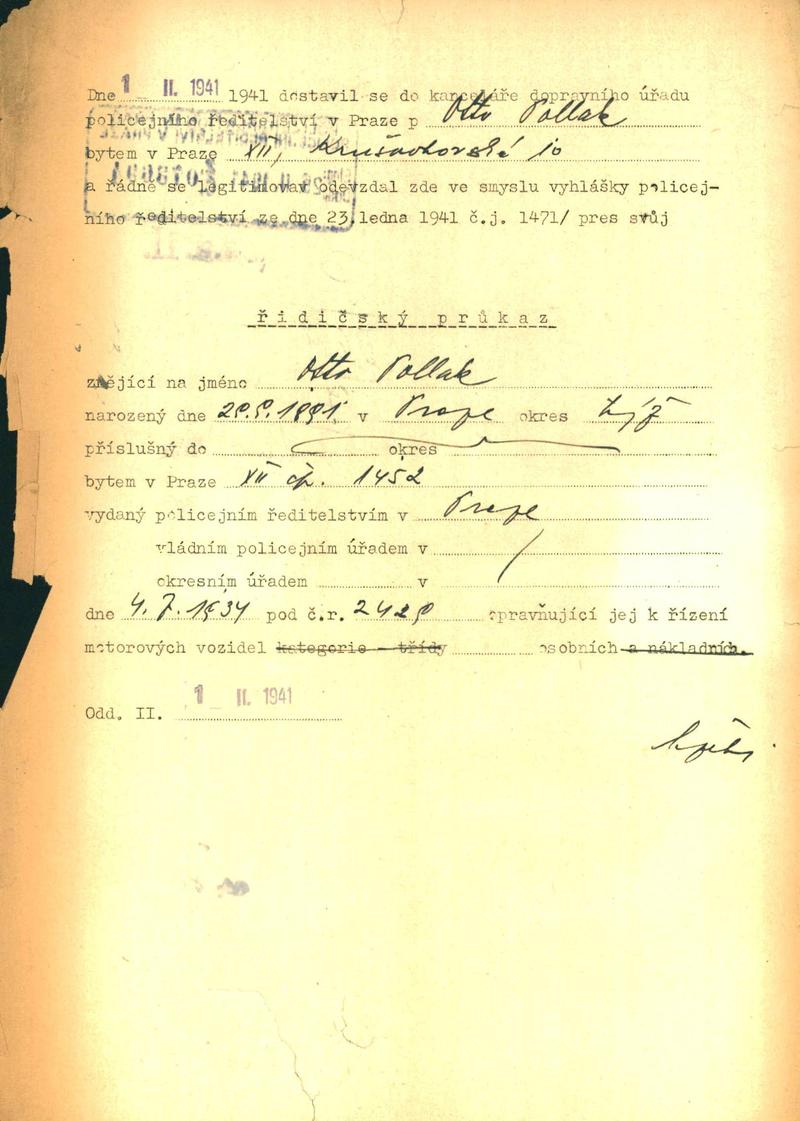 1 II. 1941
Dne 1941 dostavil se do kanceláře dopravního úřadu
policejního ředitelství v Praze p Otto Pollak
bytem v Praze XII, 10
a řádně se legitimovav odevzdal zde ve smyslu vyhlášky policej-
ního ředitelství ze dne 23.ledna 1941 č.j. 1471/ pres svůj
řidičský průkaz
znějící na jméno Otto Pollak
narozený dne v Praze okres týž
příslušný do okres
bytem v Praze XII čp. 1452
vydaný policejním ředitelstvím v Praze
vládním policejním úřadem v
okresním úřadem v
dne 4.7.1934 pod č.r. opravňující jej k řízení
motorových vozidel kategorie - třídy osobních a nákladních.
1 II. 1941
Odd. II.